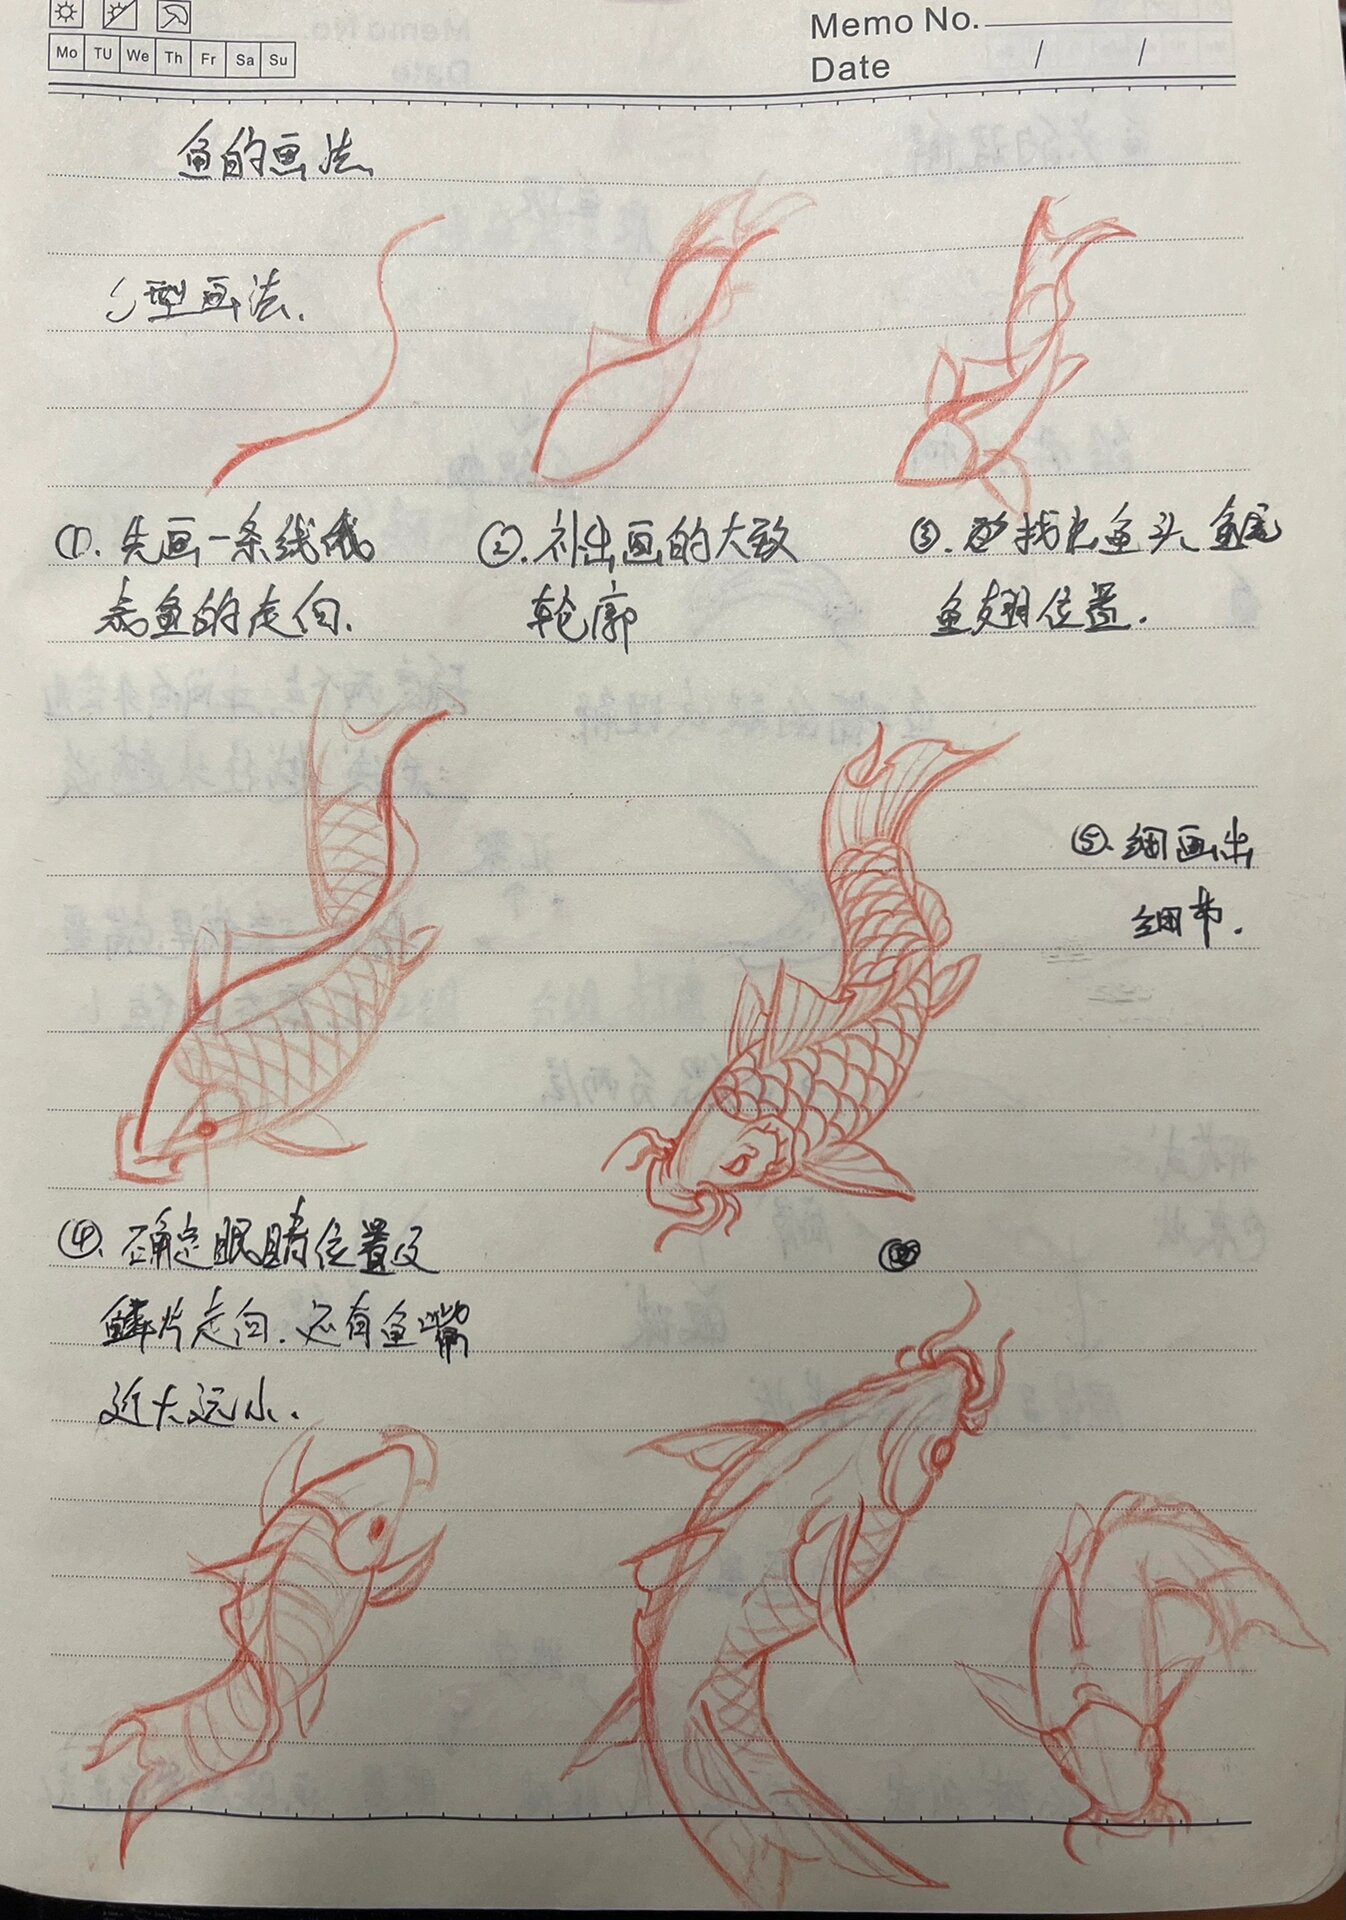 Memo No.
Mo TU We Th Fr Sa Su
Date / /
鱼的画法
S型画法.
①. 先画一条线代
表鱼的走向.
②. 补出画的大致
轮廓
③. 找出鱼头 鱼尾
鱼翅位置.
⑤. 细画出
细节.
④. 确定眼睛位置及
鳞片走向. 还有鱼嘴
近大远小.